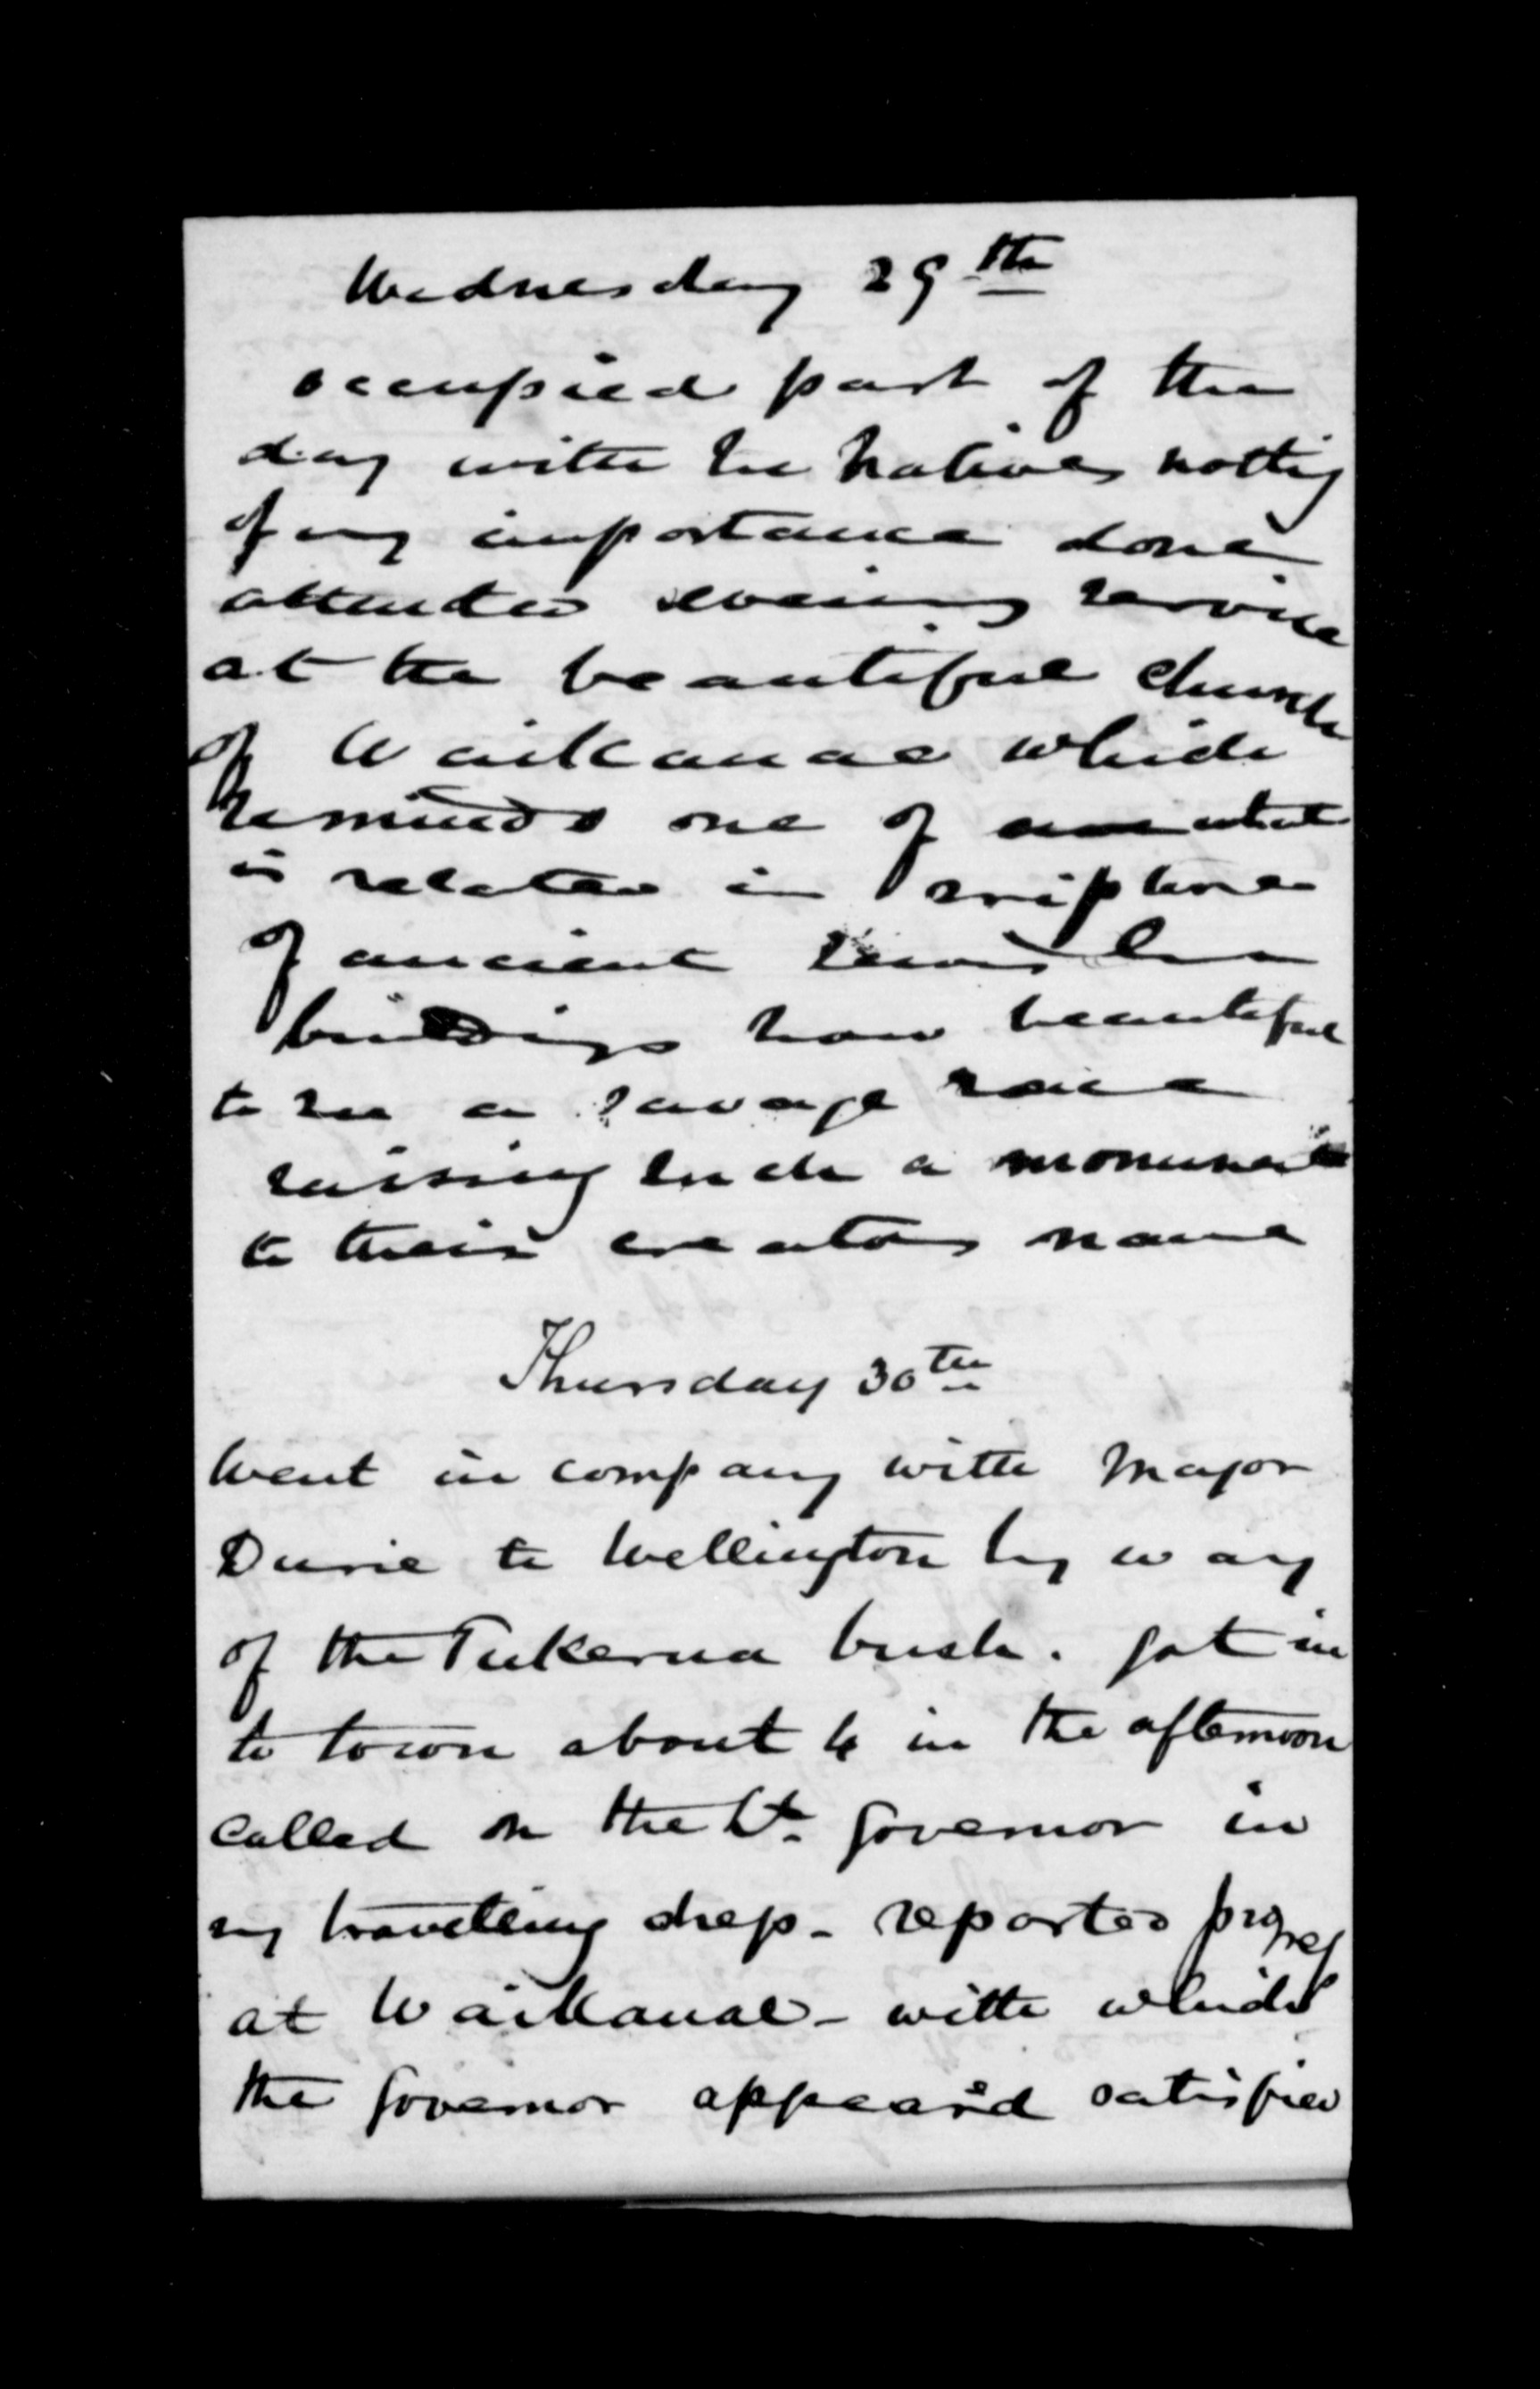 Wednesday 29th
occupied part of the
day with the natives nothig
of any importance done
attended evening service
at the beautiful church
of Waikanae which
reminds one of what
is related in scripture
of ancient
buildings how beautiful
to see a savage race
raising such a monument
to their creators name
Thursday 30th
Went in company with Major
Durie to Wellington by way
of the Pukerua bush. got in
to town about 4 in the afternoon
called on the Lt. Governor in
my travelling dress - reported progress
at Waikanae - with which
the Governor appeard satisfied